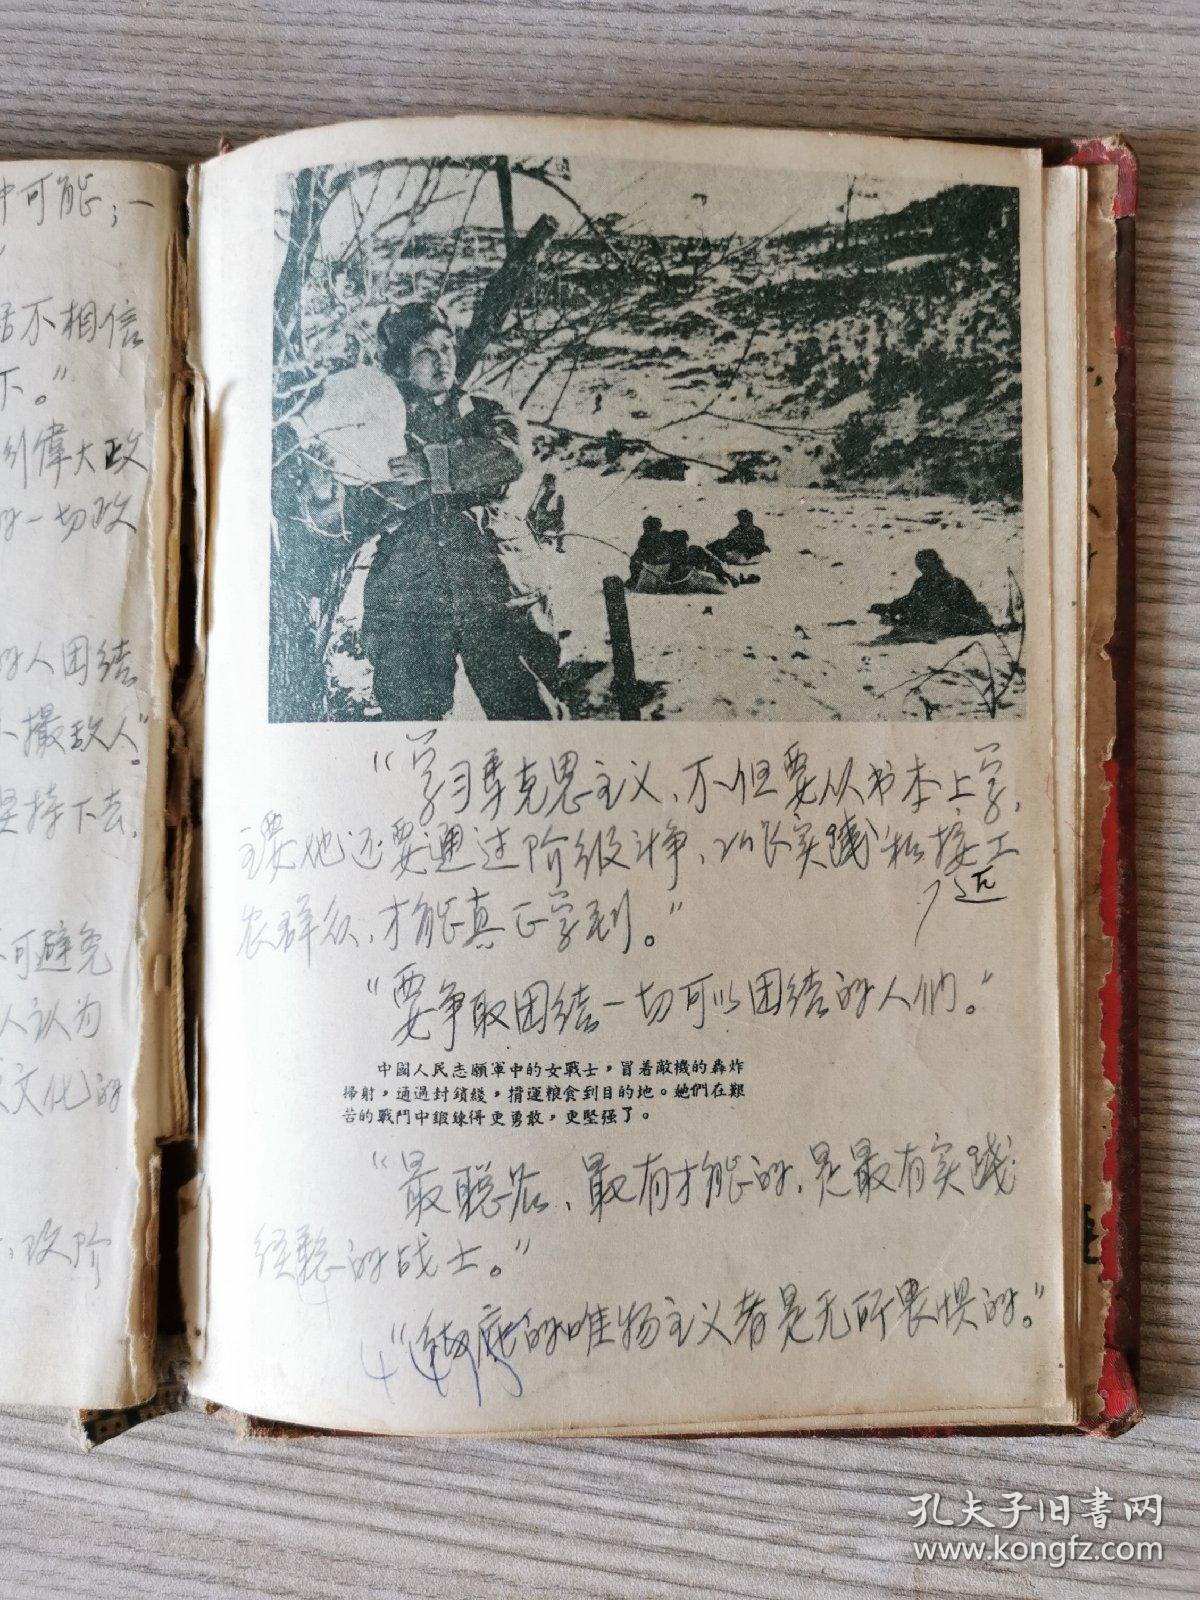 中可能；一
不相信
下。”
列偉大政
的一切政
的人团结
小撮敌人”。
坚持下去，
不可避免
人认为
文化的
改阶
“学习馬克思主义，不但要从书本上学，
主要地还要通过阶级斗争、工作实践和接近工
农群众，才能真正学到。”
“要争取团结一切可以团结的人们。”
中國人民志願軍中的女戰士，冒着敵機的轟炸
掃射，通過封鎖綫，揹運粮食到目的地。她們在艱
苦的戰鬥中鍛鍊得更勇敢，更堅强了。
“最聪明、最有才能的，是最有实践
经驗的战士。”
“彻底的唯物主义者是无所畏惧的。”
孔夫子旧書网
www.kongfz.com